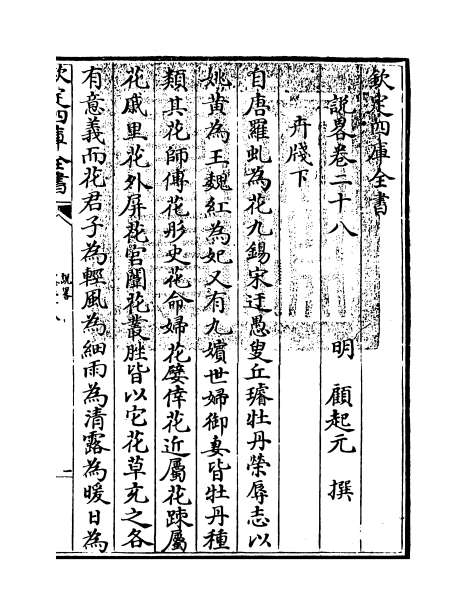 欽定四庫全書
說畧卷二十八
明 顧起元 撰
卉牋下
自唐羅虬為花九錫宋迂愚叟丘璿牡丹榮辱志以
姚黄為王魏紅為妃又有九嬪世婦御妻皆牡丹種
類其花師傅花彤史花命婦花嬖倖花近屬花疎屬
花戚里花外屏花宫闈花叢脞皆以它花草充之各
有意義而花君子為輕風為細雨為清露為暖日為
欽定四庫全書
說畧